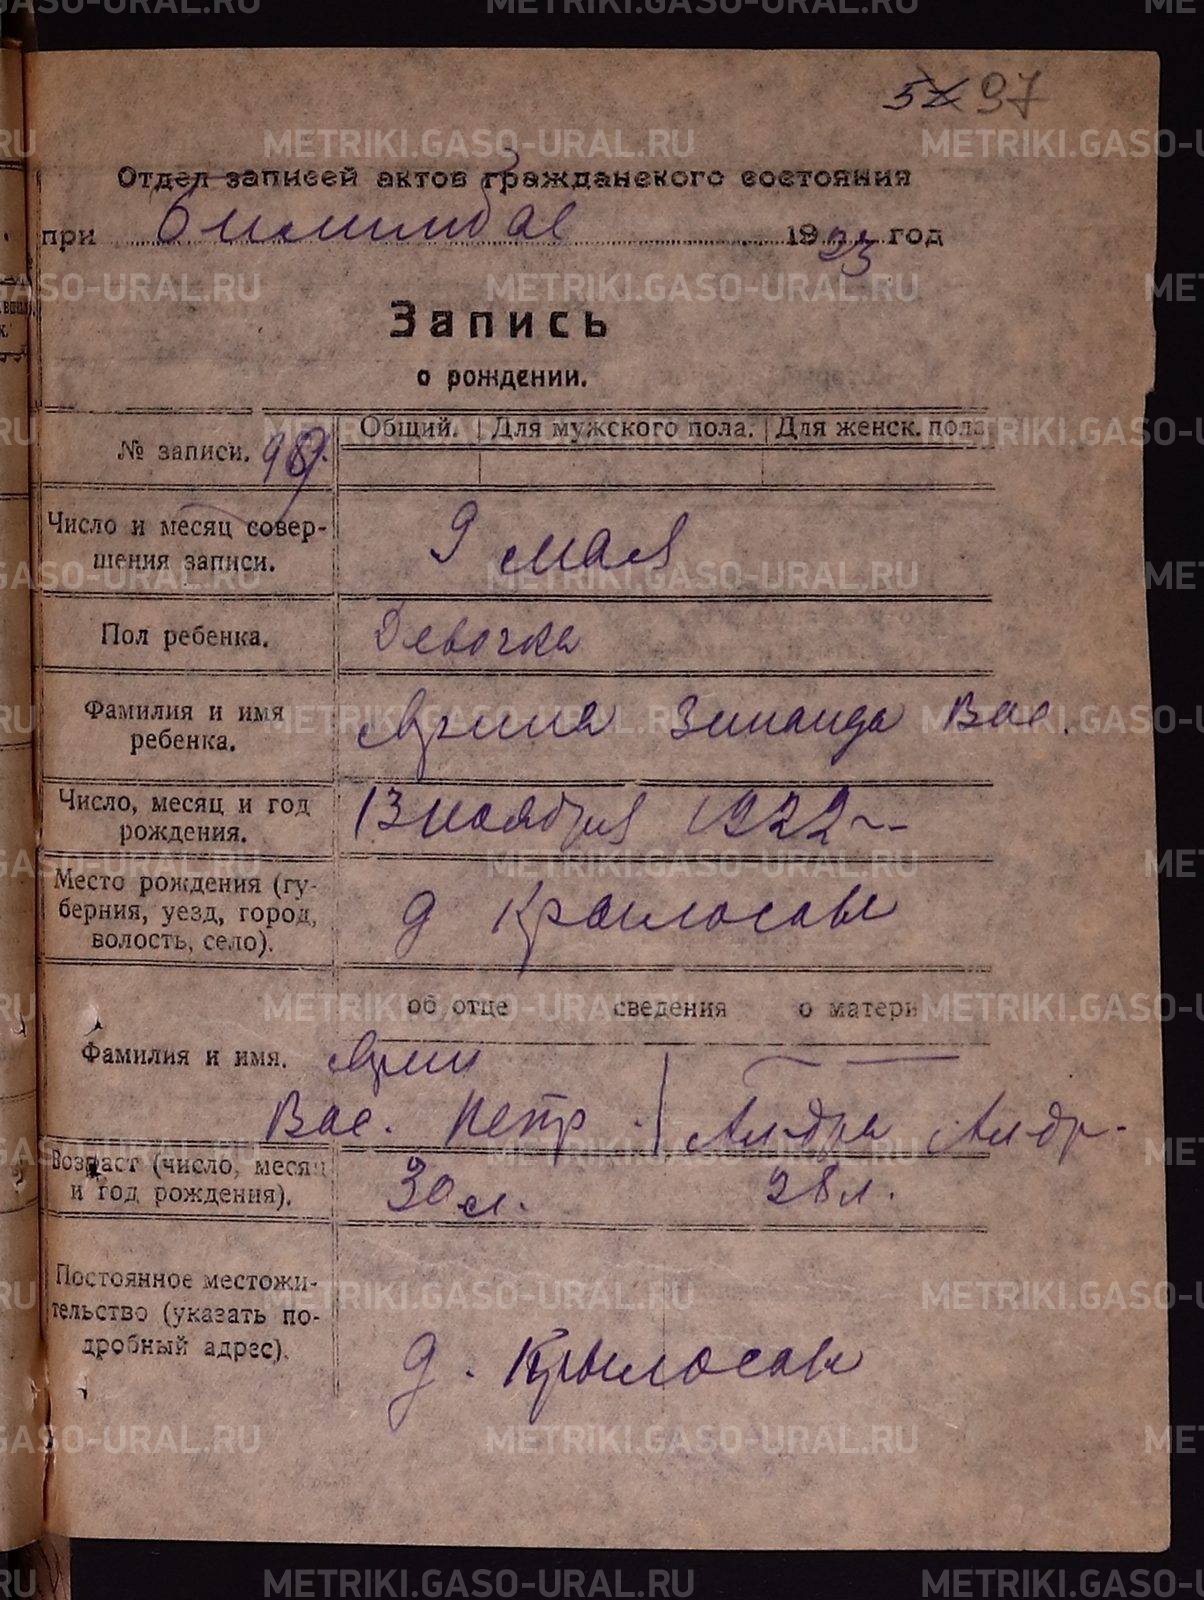 97
Отдел записей актов гражданского состояния
при Билимбае 1923 год
Запись
о рождении.
№ записи. 98. Общий. Для мужского пола. Для женск. пола
Число и месяц совер-
шения записи.
9 мая
Пол ребенка.
Девочка
Фамилия и имя
ребенка.
Зинаида Вас.
Число, месяц и год
рождения.
13 ноября 1922
Место рождения (гу-
берния, уезд, город,
волость, село).
д Крылосовы
об отце сведения о матери
Фамилия и имя.
Вас. Петр. Ал-дра Ал-др.
Возраст (число, месяц
и год рождения).
30 л. 28 л.
Постоянное местожи-
тельство (указать по-
дробный адрес).
д. Крылосовы
METRIKI.GASO-URAL.RU